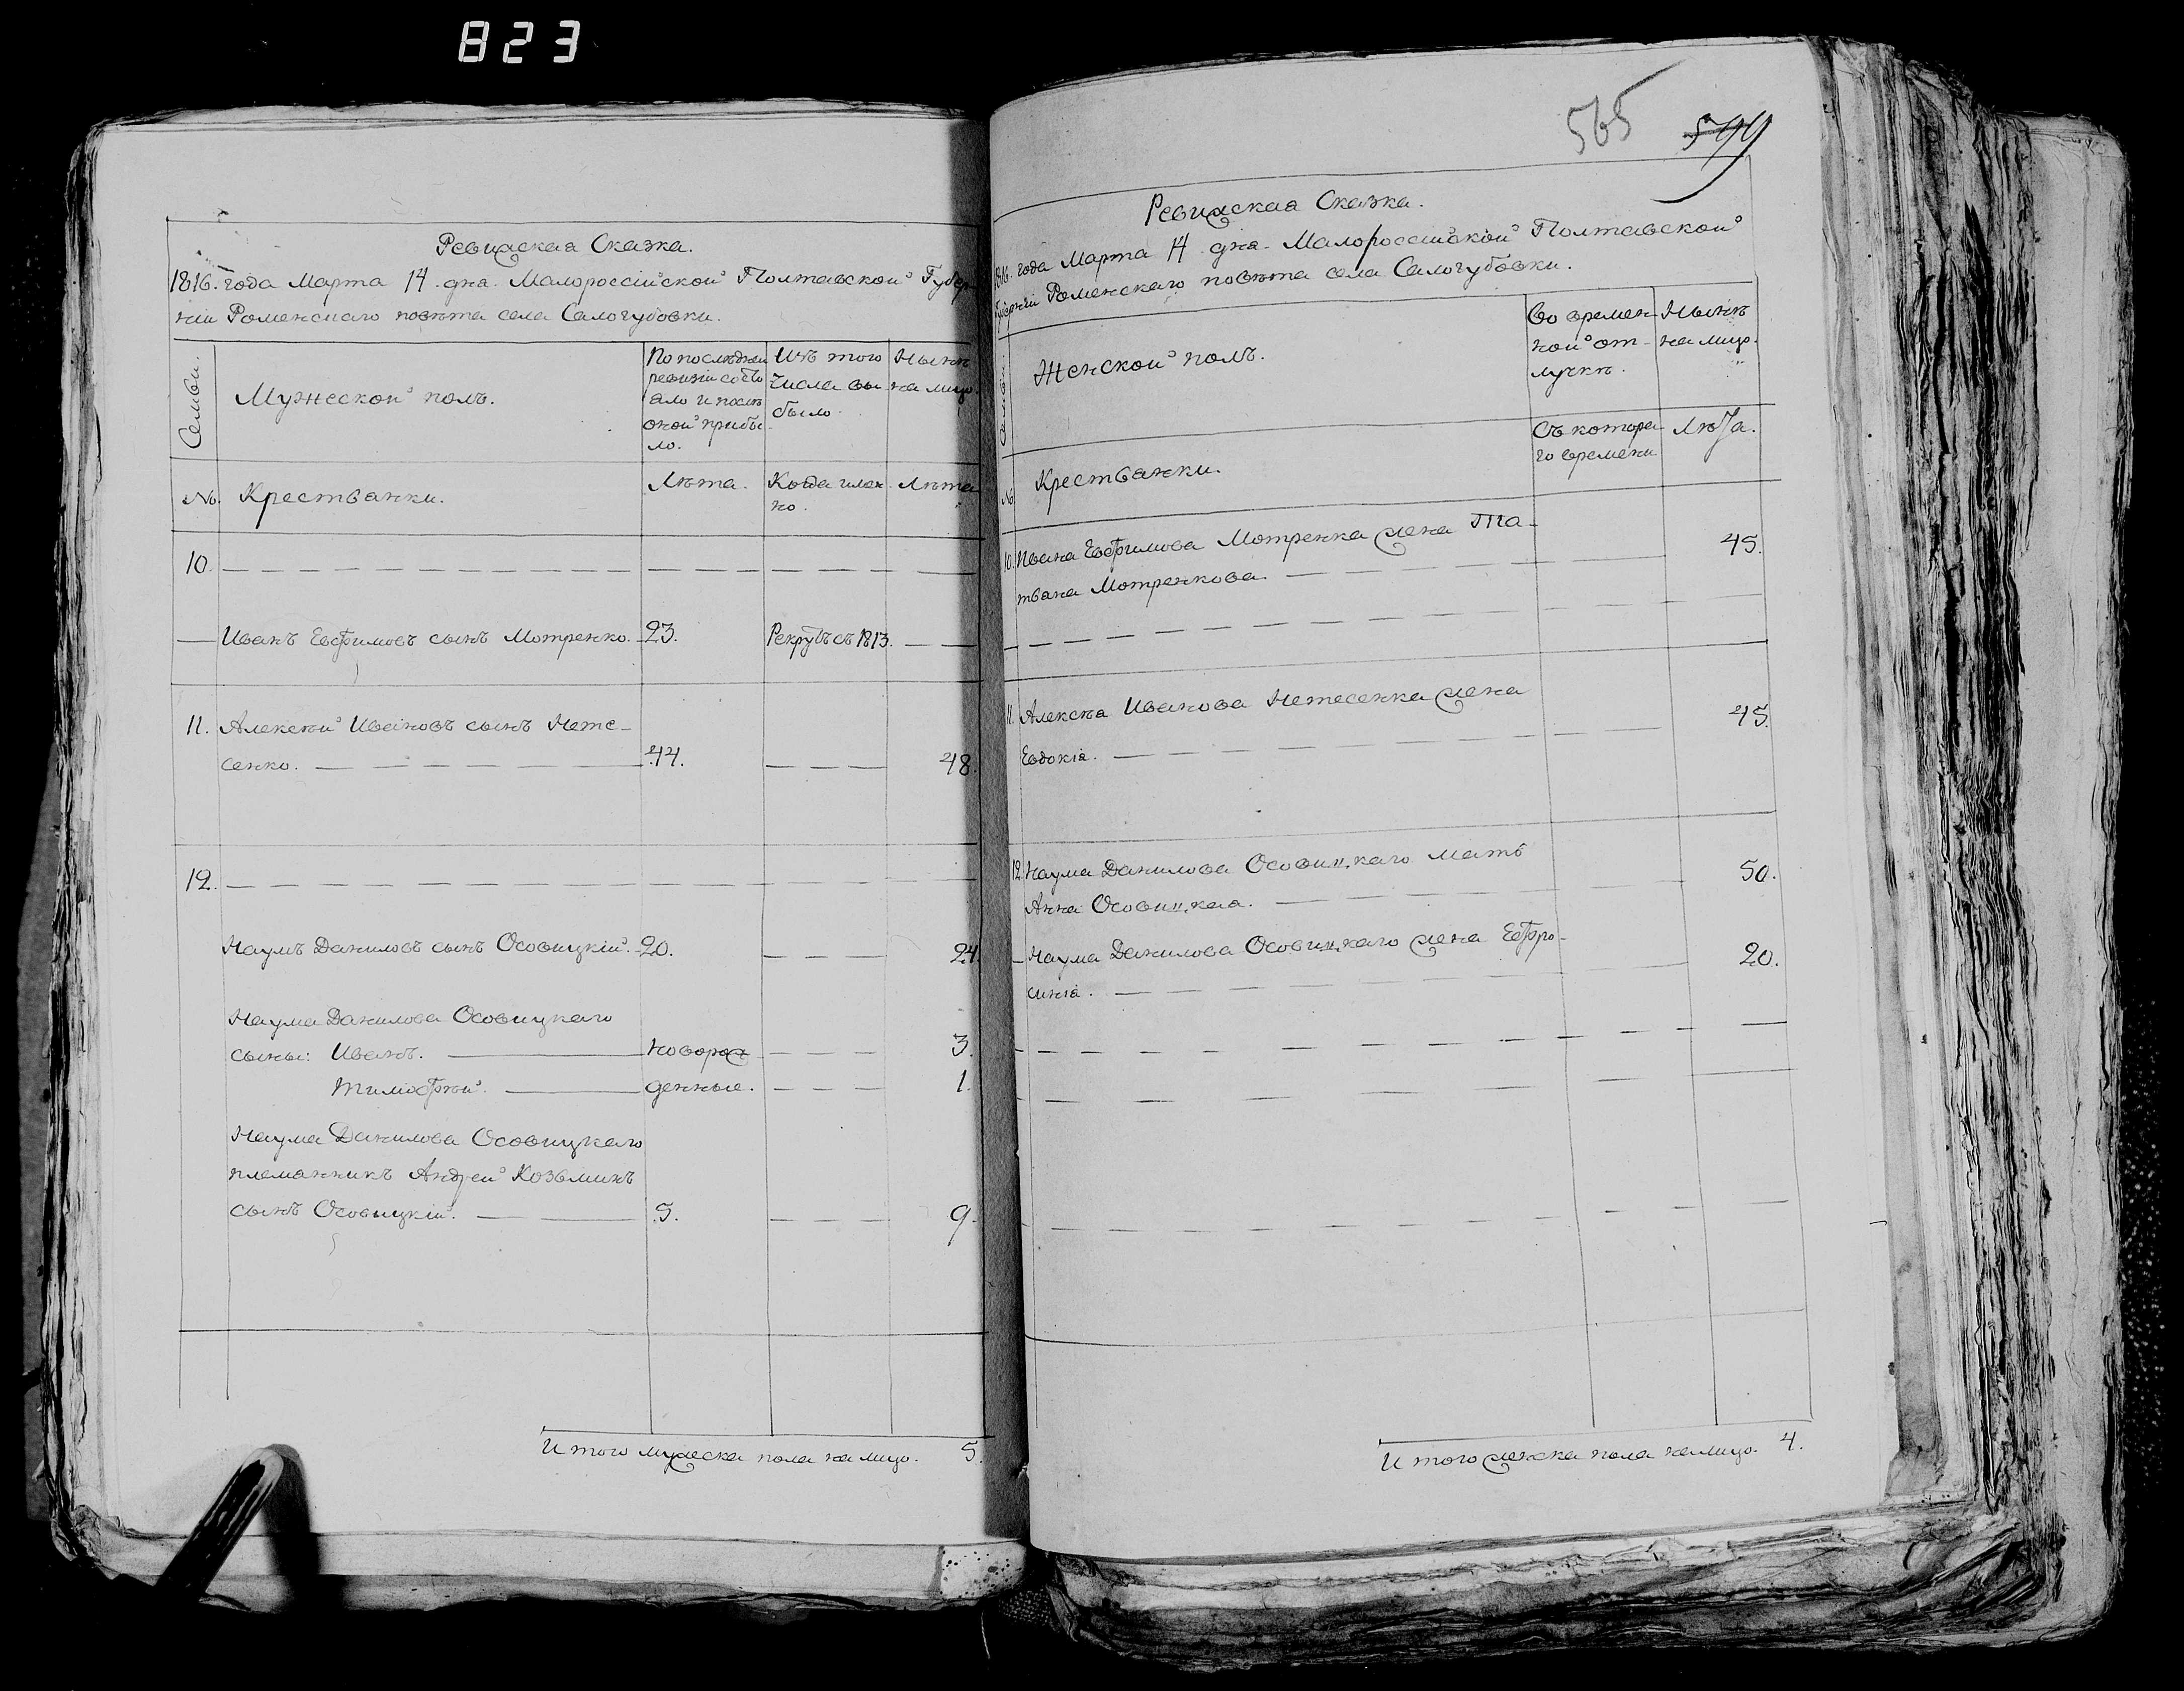 823
Ревизская Сказка.
1816. года Марта 14. дня. Малороссійской Полтавской Губер-
ніи Роменскаго повѣта села Салогубовки.
Семьи.
Мужеской полъ.
По послѣдней
ревизіи состо
яло и послѣ
оной прибы
ло.
Изъ того
числа вы
было.
Нынѣ
на лицо.
№.
Крестьянки.
Лѣта.
Когда имян
но.
Лѣта
10.
Иванъ Евфимовъ сынъ Мотренко. 23. Рекрутъ съ 1813.
11. Алексѣй Ивановъ сынъ Нете-
сенко. 44. 48.
12.
Наумъ Даниловъ сынъ Осовицкій. 20. 24.
Наума Данилова Осовицкаго
сыны: Иванъ. новорож 3.
Тимофѣй. денные. 1.
Наума Данилова Осовицкаго
племянникъ Андрей Козьминъ
сынъ Осовицкій. 5. 9.
И того мужеска пола на лицо. 5.
565 599
Ревизская Сказка.
1816. года Марта 14 дня. Малороссійской Полтавской
Губерніи Роменскаго повѣта села Салогубовки.
Семьи.
Женской полъ.
Во времен
ной от-
лучкѣ.
Нынѣ
на лицо.
№
Крестьянки.
Съ котора
го времени
Лѣта.
10. Ивана Евфимова Мотренка жена Та-
тьяна Мотренкова. 45.
11. Алексѣя Иванова Нетесенка жена
Евдокія. 45.
12. Наума Данилова Осовицкаго мать
Анна Осовицкая. 50.
Наума Данилова Осовицкаго жена Ефро-
синія. 20.
И того женска пола на лицо. 4.